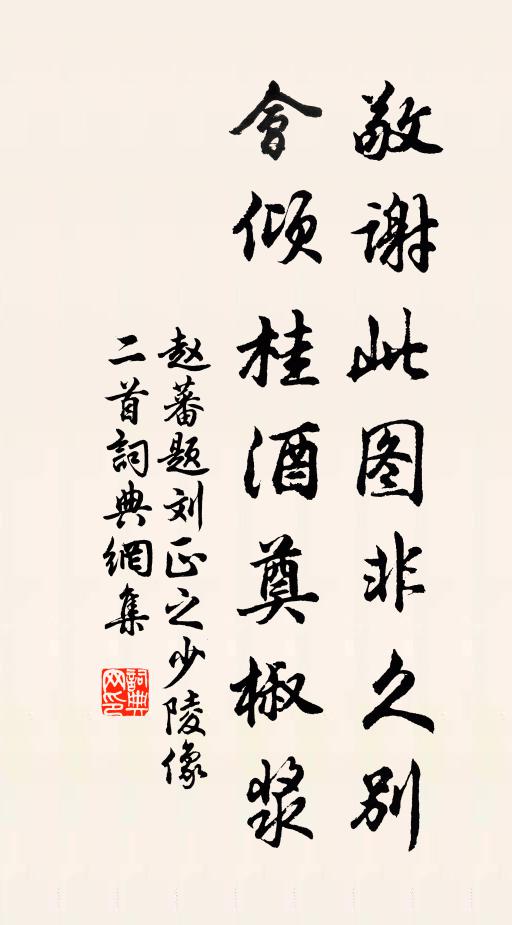 敬谢此图非久别
會倾桂酒奠椒浆
赵蕃题刘正之少陵像
二首詞典網集
詞典网印